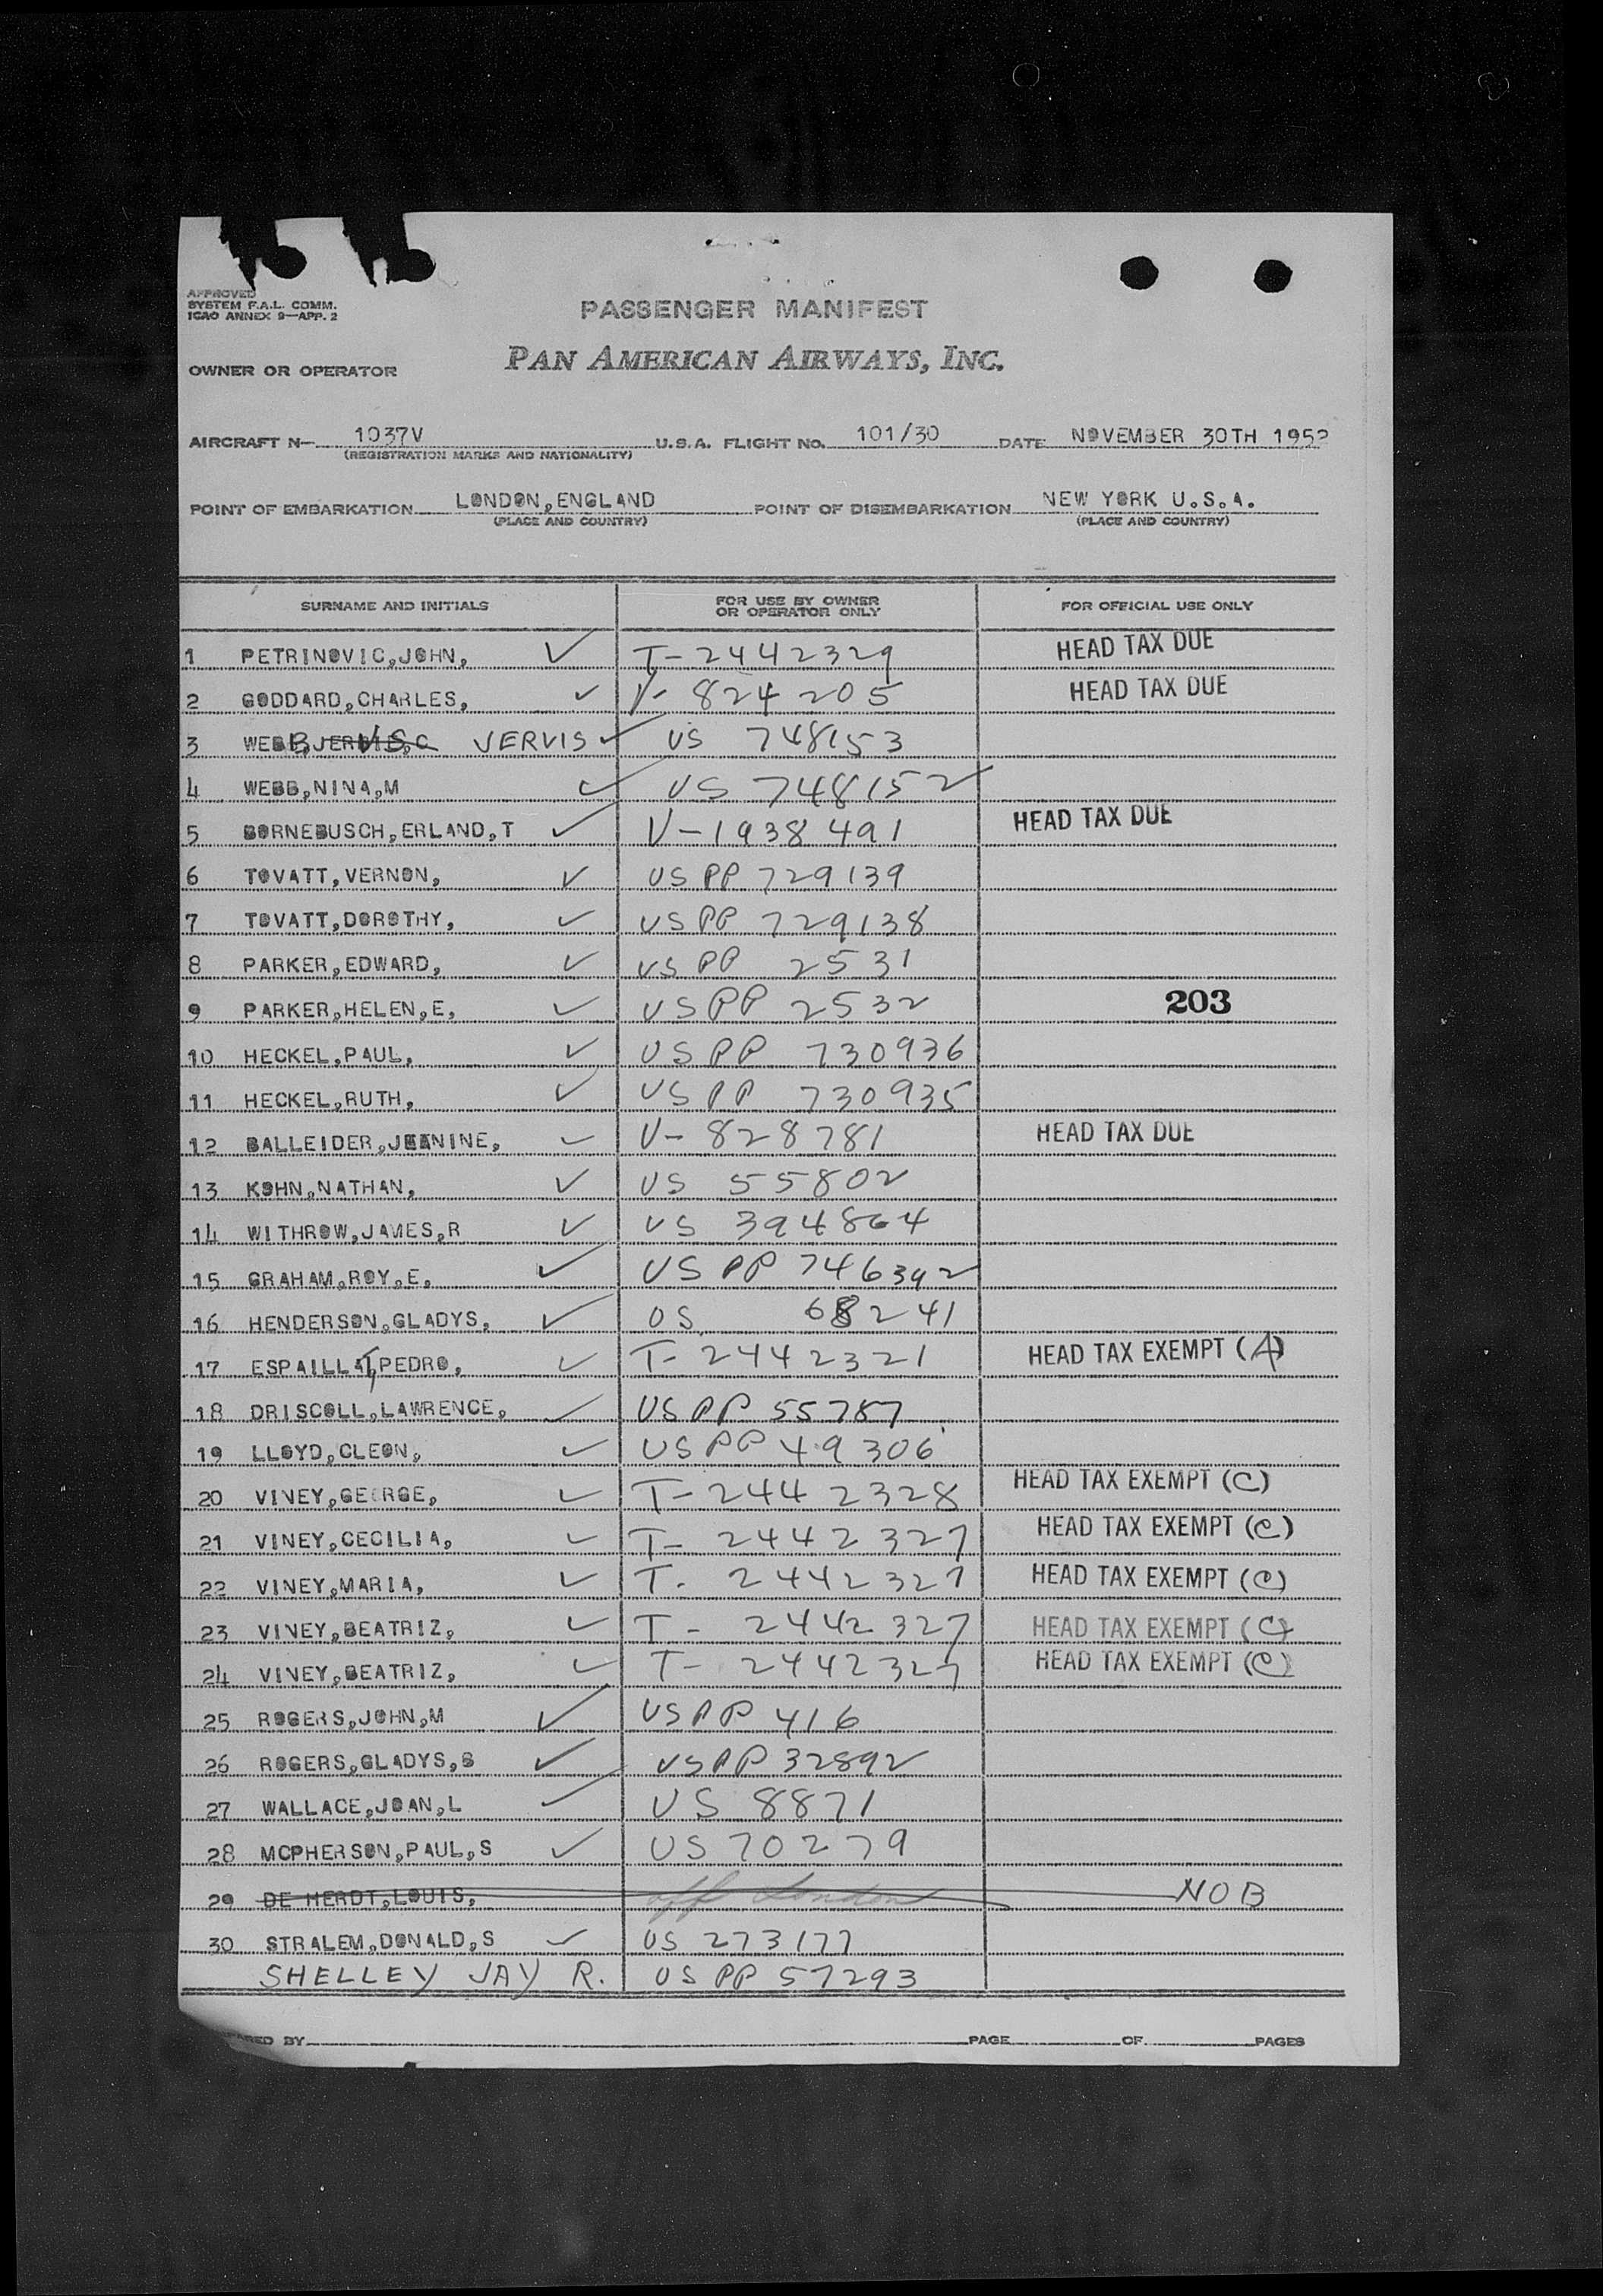 APPROVED
SYSTEM F.A.L. COMM.
ICAO ANNEX 9—APP. 2
PASSENGER MANIFEST
OWNER OR OPERATOR PAN AMERICAN AIRWAYS, INC.
AIRCRAFT N— 1037V U.S.A. FLIGHT NO. 101/30 DATE NOVEMBER 30TH 1952
(REGISTRATION MARKS AND NATIONALITY)
POINT OF EMBARKATION LONDON,ENGLAND POINT OF DISEMBARKATION NEW YORK U.S.A.
(PLACE AND COUNTRY) (PLACE AND COUNTRY)
SURNAME AND INITIALS FOR USE BY OWNER OR OPERATOR ONLY FOR OFFICIAL USE ONLY
1 PETRINOVIC,JOHN, ✓ T-2442329 HEAD TAX DUE
2 GODDARD,CHARLES, ✓ V-824205 HEAD TAX DUE
3 WEBB,JERVIS,C VERVIS ✓ US 748153
4 WEBB,NINA,M ✓ US 748152
5 BORNEBUSCH,ERLAND,T ✓ V-1938491 HEAD TAX DUE
6 TOVATT,VERNON, ✓ US PP 729139
7 TOVATT,DOROTHY, ✓ US PP 729138
8 PARKER,EDWARD, ✓ US PP 2531
9 PARKER,HELEN,E, ✓ US PP 2532 203
10 HECKEL,PAUL, ✓ US PP 730936
11 HECKEL,RUTH, ✓ US PP 730935
12 BALLEIDER,JEANINE, ✓ V-828781 HEAD TAX DUE
13 KOHN,NATHAN, ✓ US 55802
14 WITHROW,JAMES,R ✓ US 394864
15 GRAHAM,ROY,E, ✓ US PP 746392
16 HENDERSON,GLADYS, ✓ US 68241
17 ESPAILLAT,PEDRO, ✓ T-2442321 HEAD TAX EXEMPT (A)
18 DRISCOLL,LAWRENCE, ✓ US PP 55787
19 LLOYD,CLEON, ✓ US PP 49306
20 VINEY,GEORGE, ✓ T-2442328 HEAD TAX EXEMPT (C)
21 VINEY,CECILIA, ✓ T-2442327 HEAD TAX EXEMPT (C)
22 VINEY,MARIA, ✓ T-2442327 HEAD TAX EXEMPT (C)
23 VINEY,BEATRIZ, ✓ T-2442327 HEAD TAX EXEMPT (C)
24 VINEY,BEATRIZ, ✓ T-2442327 HEAD TAX EXEMPT (C)
25 ROGERS,JOHN,M ✓ US PP 416
26 ROGERS,GLADYS,B ✓ US PP 32892
27 WALLACE,JOAN,L ✓ US 8871
28 MCPHERSON,PAUL,S ✓ US 70279
29 DE HERDT,LOUIS, off London NOB
30 STRALEM,DONALD,S ✓ US 273177
SHELLEY JAY R. US PP 57293
BY PAGE OF PAGES